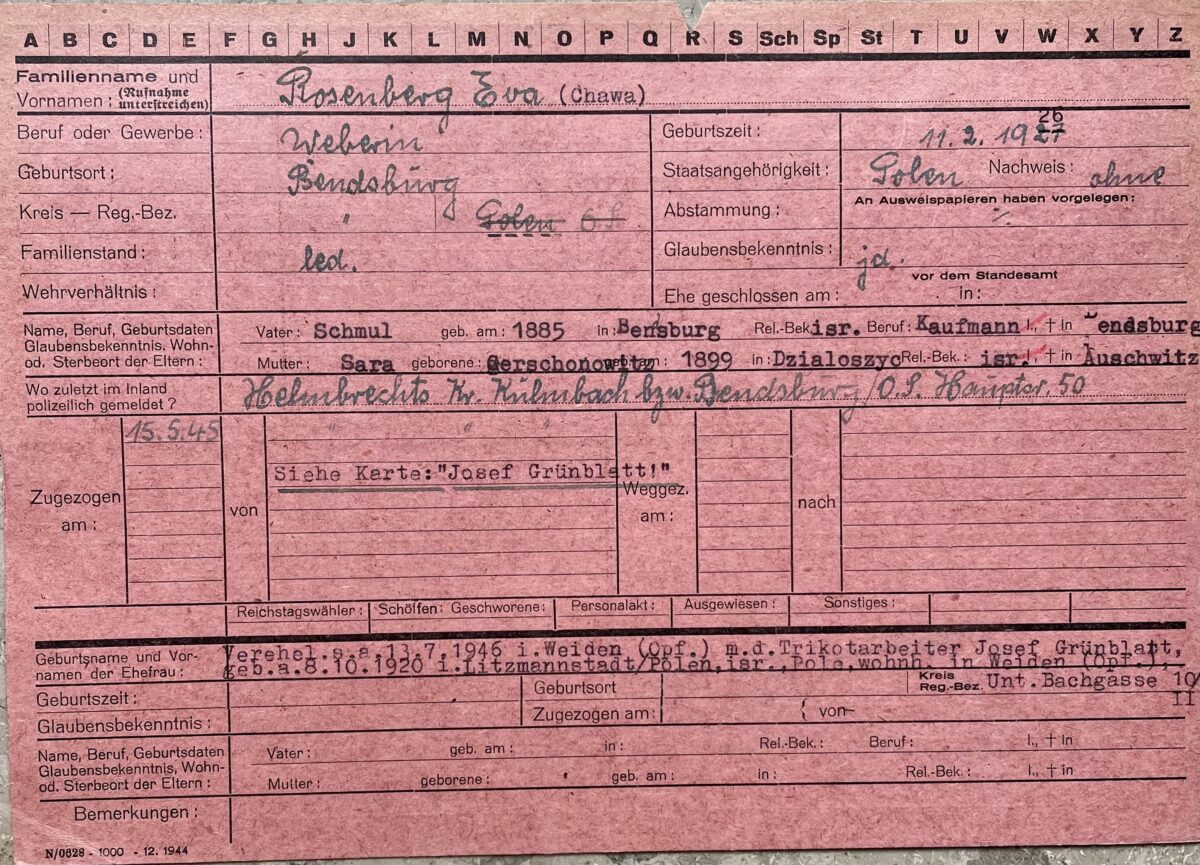 A B C D E F G H J K L M N O P Q R S Sch Sp St T U V W X Y Z
Familienname und Vornamen: (Rufnahme unterstreichen) Rosenberg Eva (Chawa)
Beruf oder Gewerbe: Weberin Geburtszeit: 11. 2. 1927 26
Geburtsort: Bendsburg Staatsangehörigkeit: Polen Nachweis: ohne
Kreis — Reg.-Bez. " Polen Abstammung: An Ausweispapieren haben vorgelegen:
Familienstand: led. Glaubensbekenntnis: jd.
Wehrverhältnis: Ehe geschlossen am: vor dem Standesamt in:
Name, Beruf, Geburtsdaten Glaubensbekenntnis, Wohn- od. Sterbeort der Eltern:
Vater: Schmul geb. am: 1885 in: Bensburg Rel.-Bek. isr. Beruf: Kaufmann l., † in Bendsburg
Mutter: Sara geborene: Gerschonowitz 1899 in: Dzialoszyc Rel.-Bek.: isr. l., † in Auschwitz
Wo zuletzt im Inland polizeilich gemeldet? Helmbrechts Kr. Kulmbach bzw. Bendsburg/O.S. Hauptstr. 50
15.5.45 " " "
Siehe Karte: "Josef Grünblatt!"
Zugezogen am: von Weggez. am: nach
Reichstagswähler: Schöffen: Geschworene: Personalakt: Ausgewiesen: Sonstiges:
Geburtsname und Vornamen der Ehefrau: Verehel.s.a.13.7.1946 i.Weiden (Opf.) m.d.Trikotarbeiter Josef Grünblatt,
geb.a.8.10.1920 i.Litzmannstadt/Polen,isr.,Pole,wohnh. in Weiden (Opf.),
Geburtszeit: Geburtsort Kreis Reg.-Bez. Unt.Bachgasse 10/
II
Glaubensbekenntnis: Zugezogen am: von
Name, Beruf, Geburtsdaten Glaubensbekenntnis, Wohn- od. Sterbeort der Eltern:
Vater: geb. am: in: Rel.-Bek.: Beruf: l., † in
Mutter: geborene: geb. am: in: Rel.-Bek.: l., † in
Bemerkungen:
N/0628 - 1000 - 12. 1944